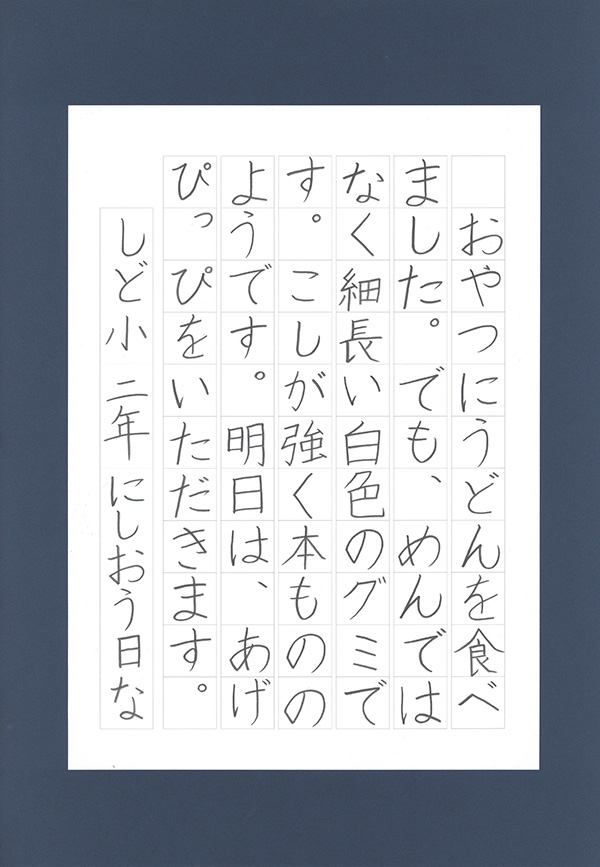 おやつにうどんを食べ
ました。でも、めんでは
なく細長い白色のグミで
す。こしが強く本ものの
ようです。明日は、あげ
ぴっぴをいただきます。
しど小 二年 にしおう日な